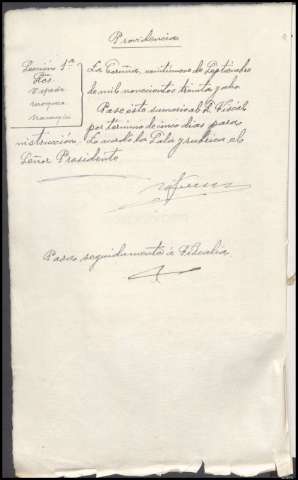 Providencia
Sección 1ª
Sres.
La Coruña, veintinueve de Septiembre
de mil novecientos treinta y ocho
Pase ésta sumaria al S. Fiscal
por término de cinco dias para
instrucción. Lo acordó la Sala y rubrica el
Señor Presidente
Pasa seguidamente á Fiscalia